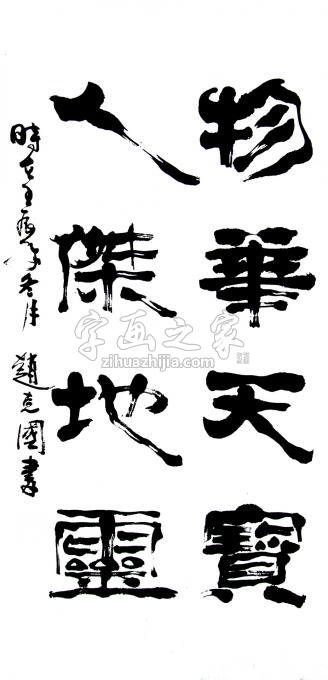 物華天寶
人傑地靈
時在壬辰年冬月 趙克國書
字画之家
zihuazhijia.com